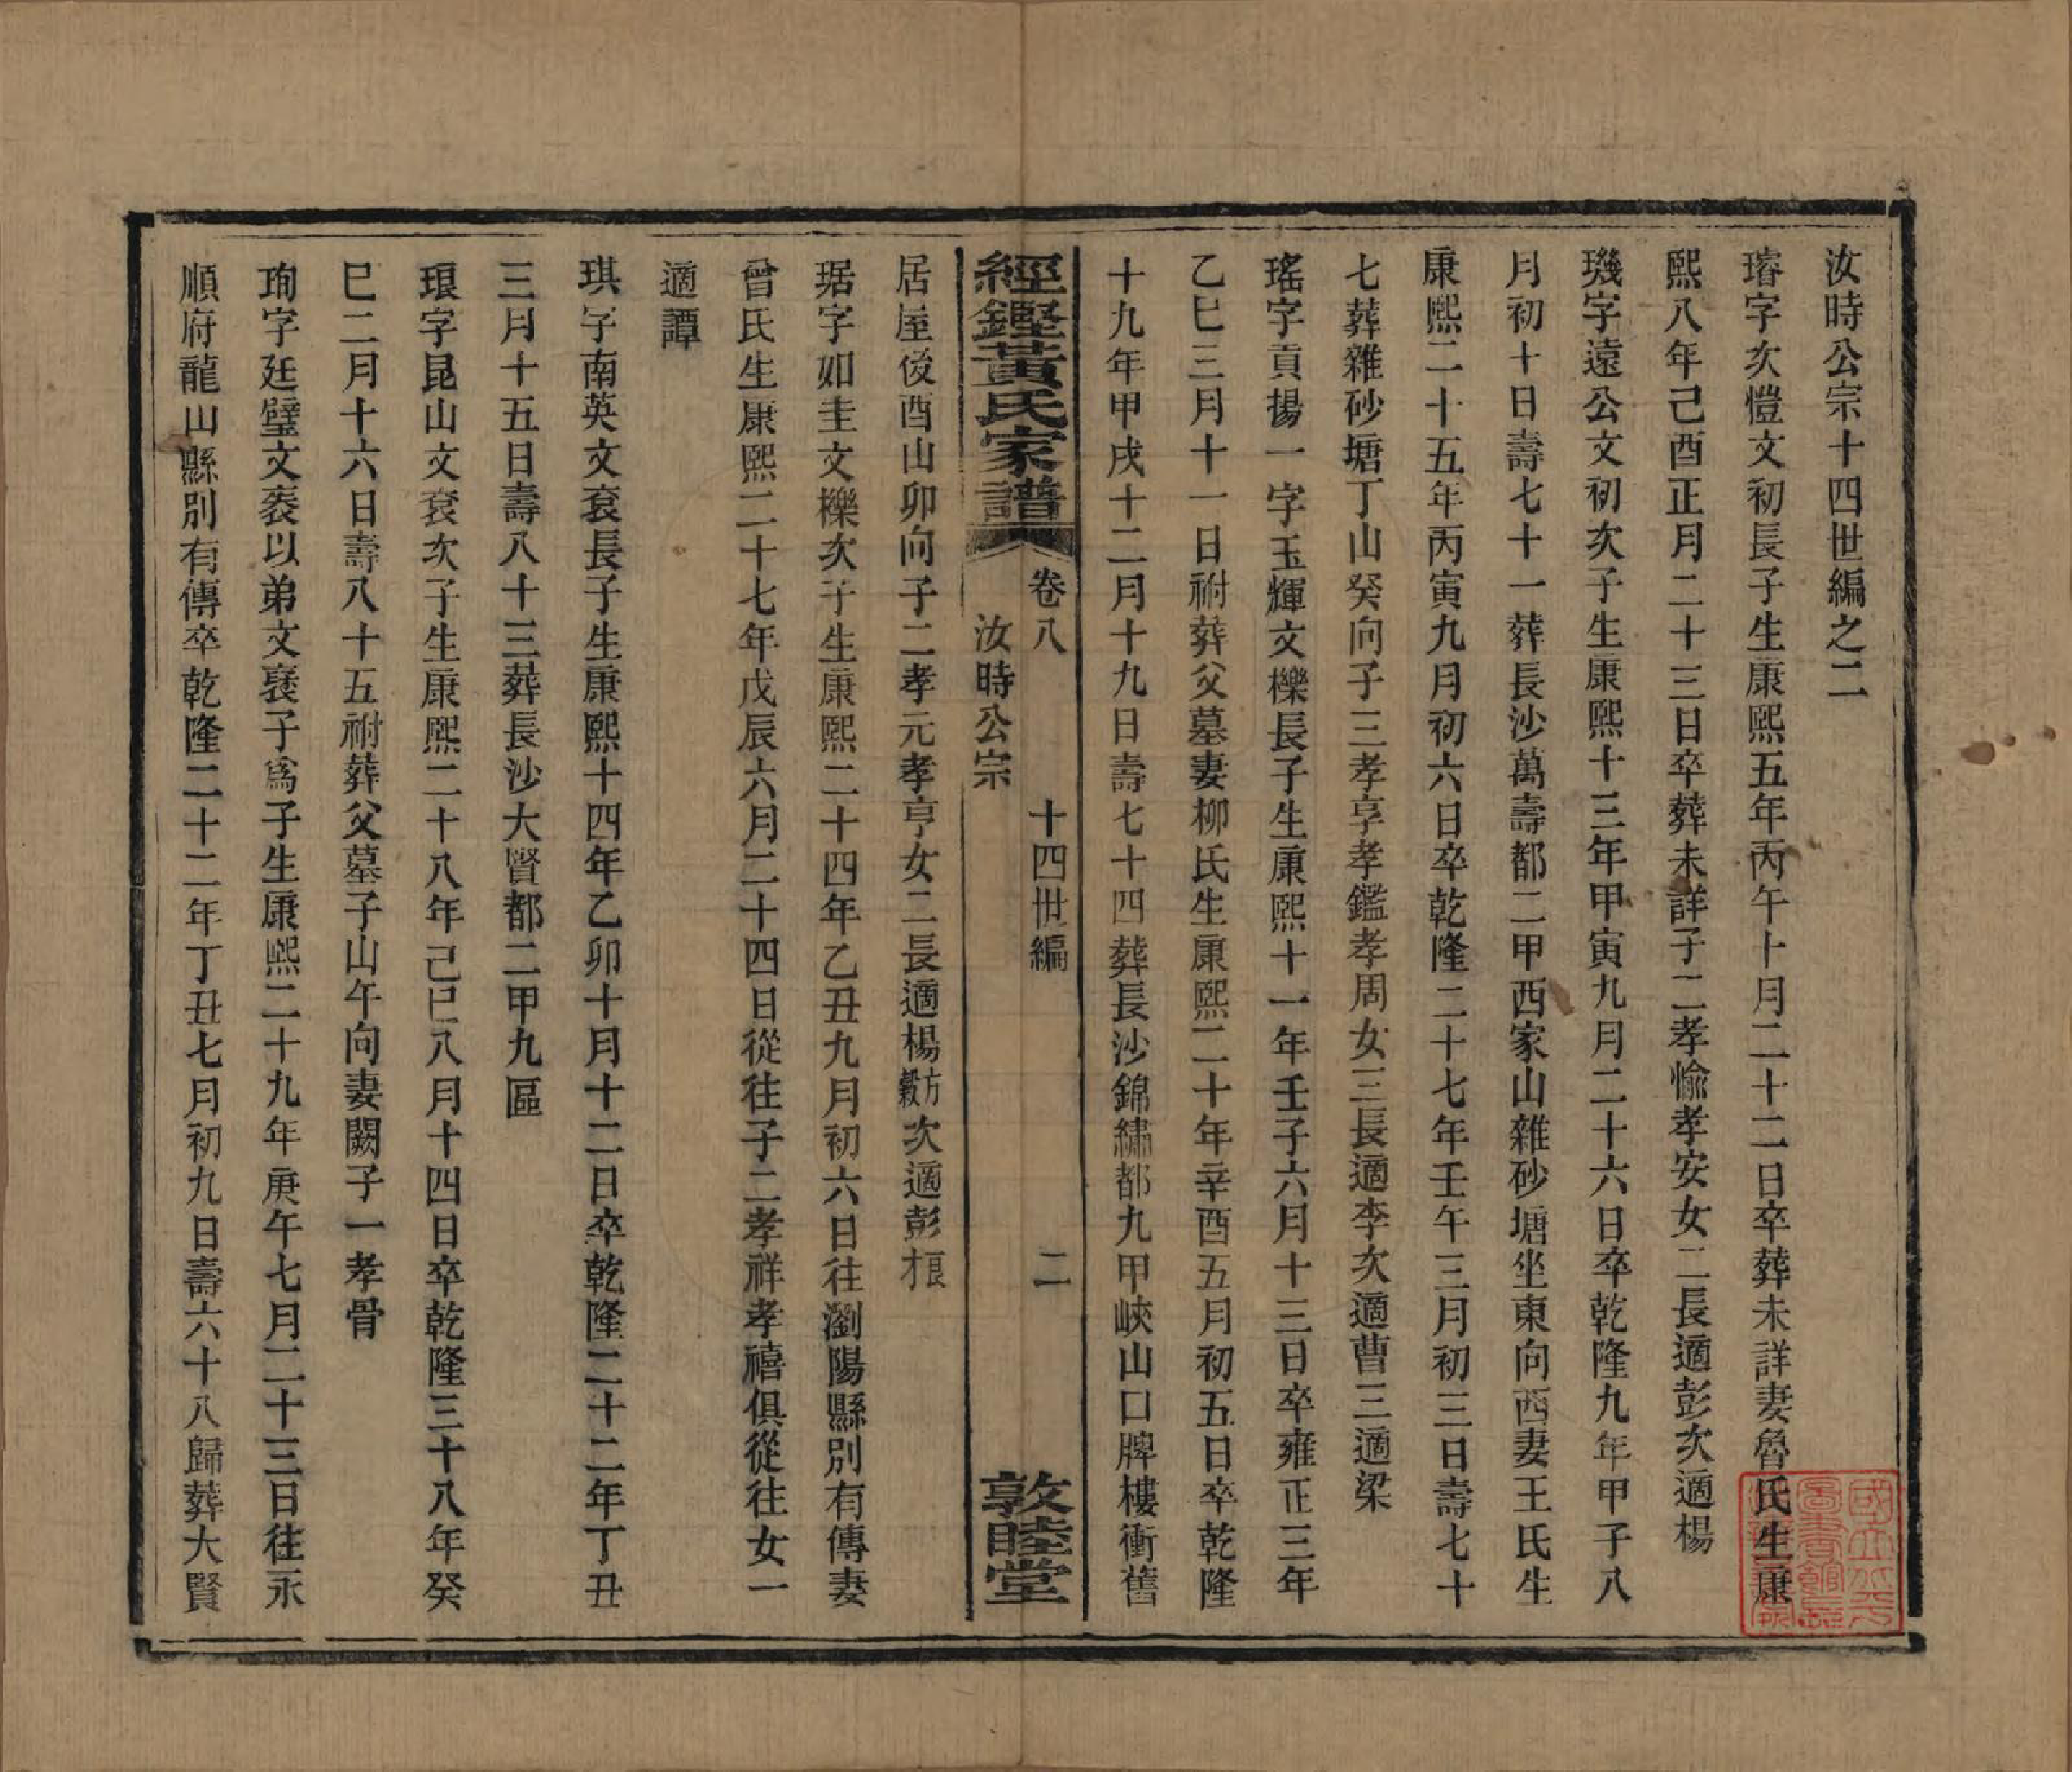 汝時公宗十四世編之二
璿字次愷文初長子生康熙五年丙午十月二十二日卒葬未詳妻魯氏生康
熙八年己酉正月二十三日卒葬未詳子二孝愉孝安女二長適彭次適楊
璣字遠公文初次子生康熙十三年甲寅九月二十六日卒乾隆九年甲子八
月初十日壽七十一葬長沙萬壽都二甲西家山雜砂塘坐東向西妻王氏生
康熙二十五年丙寅九月初六日卒乾隆二十七年壬午三月初三日壽七十
七葬雜砂塘丁山癸向子三孝享孝鑑孝周女三長適李次適曹三適梁
瑤字貢揚一字玉輝文櫟長子生康熙十一年壬子六月十三日卒雍正三年
乙巳三月十一日祔葬父墓妻柳氏生康熙二十年辛酉五月初五日卒乾隆
十九年甲戌十二月十九日壽七十四葬長沙錦繡都九甲峽山口牌樓衝舊
經鏗黃氏家譜 卷八 汝時公宗 十四世編 二 敦睦堂
居屋後酉山卯向子二孝元孝亨女二長適楊方穀次適彭才根
琚字如圭文櫟次子生康熙二十四年乙丑九月初六日往瀏陽縣別有傳妻
曾氏生康熙二十七年戊辰六月二十四日從往子二孝祥孝禧俱從往女一
適譚
琪字南英文袞長子生康熙十四年乙卯十月十二日卒乾隆二十二年丁丑
三月十五日壽八十三葬長沙大賢都二甲九區
琅字昆山文袞次子生康熙二十八年己巳八月十四日卒乾隆三十八年癸
巳二月十六日壽八十五祔葬父墓子山午向妻闕子一孝骨
珣字廷璧文袠以弟文褎子爲子生康熙二十九年庚午七月二十三日往永
順府龍山縣別有傳卒乾隆二十二年丁丑七月初九日壽六十八歸葬大賢